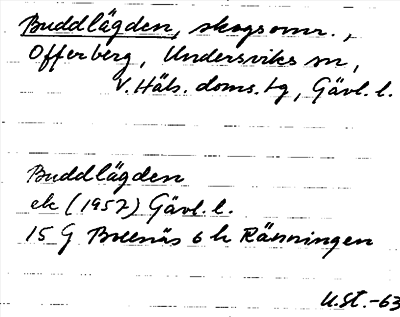 Buddlägden, skogsomr.,
Offerberg, Undersviks sn,
V. Häls. doms. tg, Gävl. l.
Buddlägden
ek (1957) Gävl. l.
15 G Bollnäs 6 hRänningen
U.St.-63